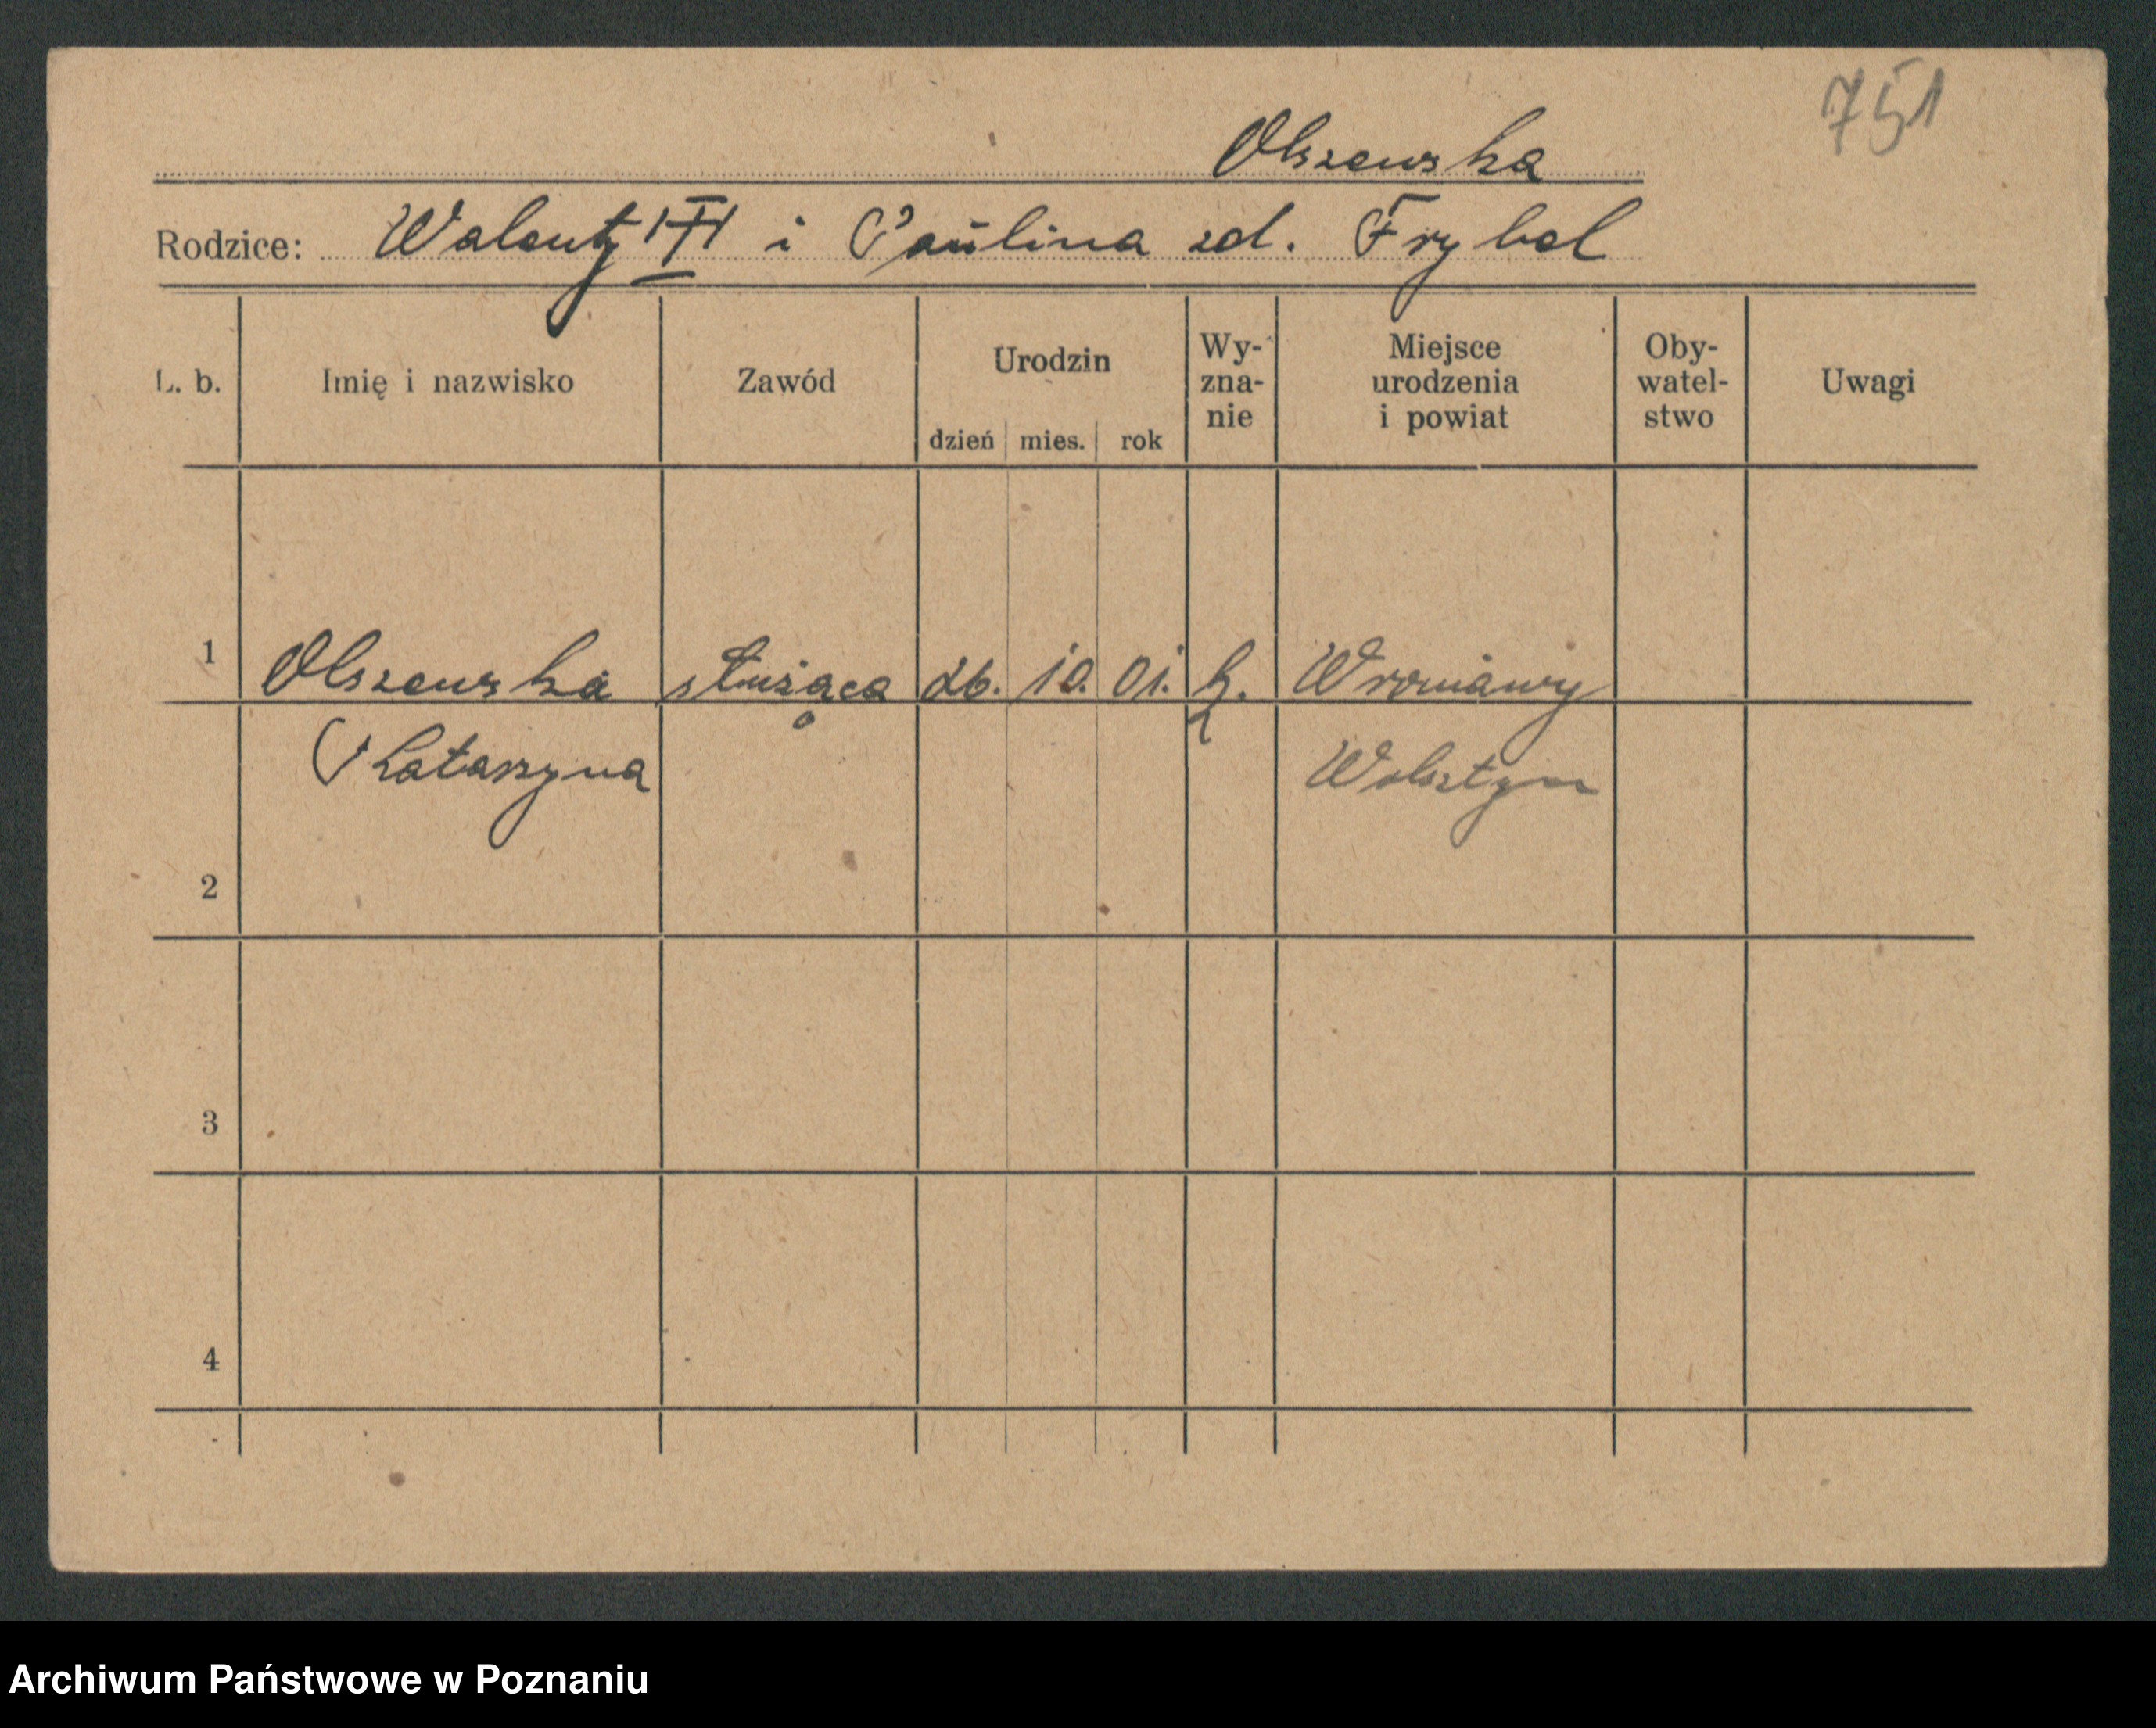 751
Olszewska
Rodzice: Walenty i Paulina zd. Frybel
L. b. Imię i nazwisko Zawód Urodzin dzień mies. rok Wy-zna-nie Miejsce urodzenia i powiat Oby-watel-stwo Uwagi
1 Olszewska służąca 26. 10. 01. k. Wroniawy
Katarzyna Wolsztyn
2
3
4
Archiwum Państwowe w Poznaniu